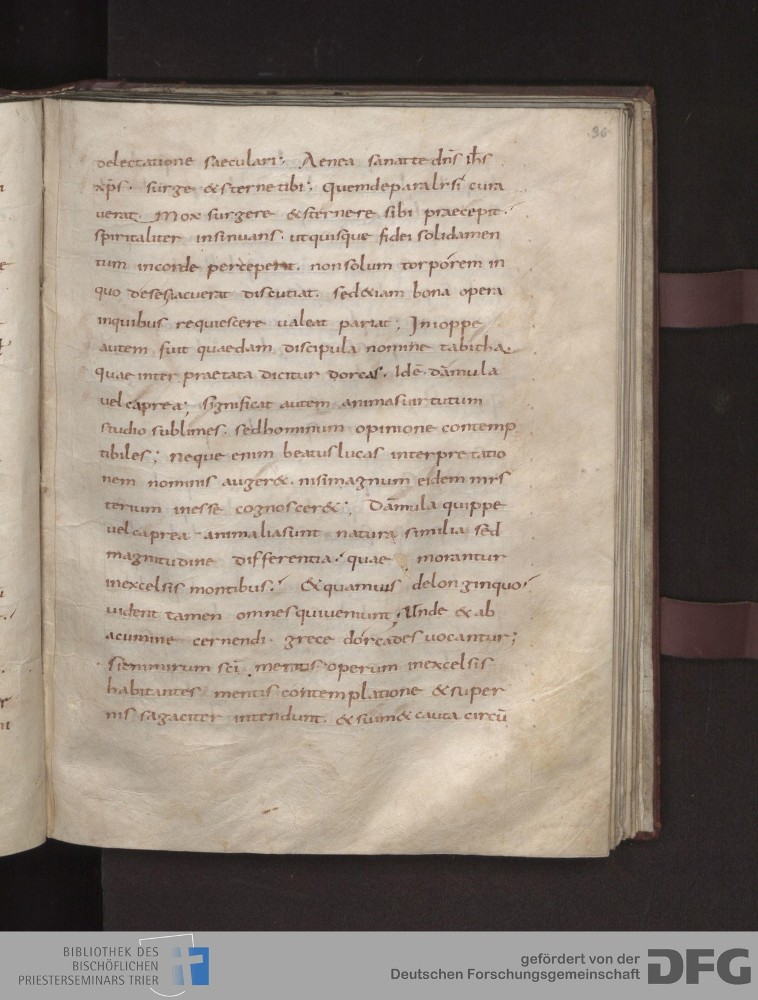 36
delectatione saeculari; Aenea sanat te dn̄s ih̄s
xp̄s. surge & sterne tibi; quem de paralysi cura
verat. Mox surgere & sternere sibi praecepit.
spiritaliter insinuans. ut quisque fidei solidamen
tum in corde perceperit. non solum torporem in
quo deses iacuerat discutiat. sed etiam bona opera
in quibus requiescere valeat pariat; In ioppe
autem fuit quaedam discipula nomine tabitha.
quae interpraetata dicitur dorcas. Idē dāmula
vel caprea; significat autem animas virtutum
studio sublimes. sed hominum opinione contemp
tibiles; neque enim beatus lucas interpretatio
nem nominis auger&. nisi magnum eidem mys
terium inesse cognoscer&; Dāmula quippe
vel caprea animalia sunt natura similia sed
magnitudine differentia. quae morantur
in excelsis montibus. & quamvis de longinquo
vident tamen omnes qui veniunt; Unde & ab
acumine cernendi. grece dorcades vocantur;
sic nimirum sc̄i meritis operum in excelsis
habitantes mentis contemplatione & super
nis sagaciter intendunt. & suim& cauta circū
BIBLIOTHEK DES
BISCHÖFLICHEN
PRIESTERSEMINARS TRIER
gefördert von der
Deutschen Forschungsgemeinschaft
DFG